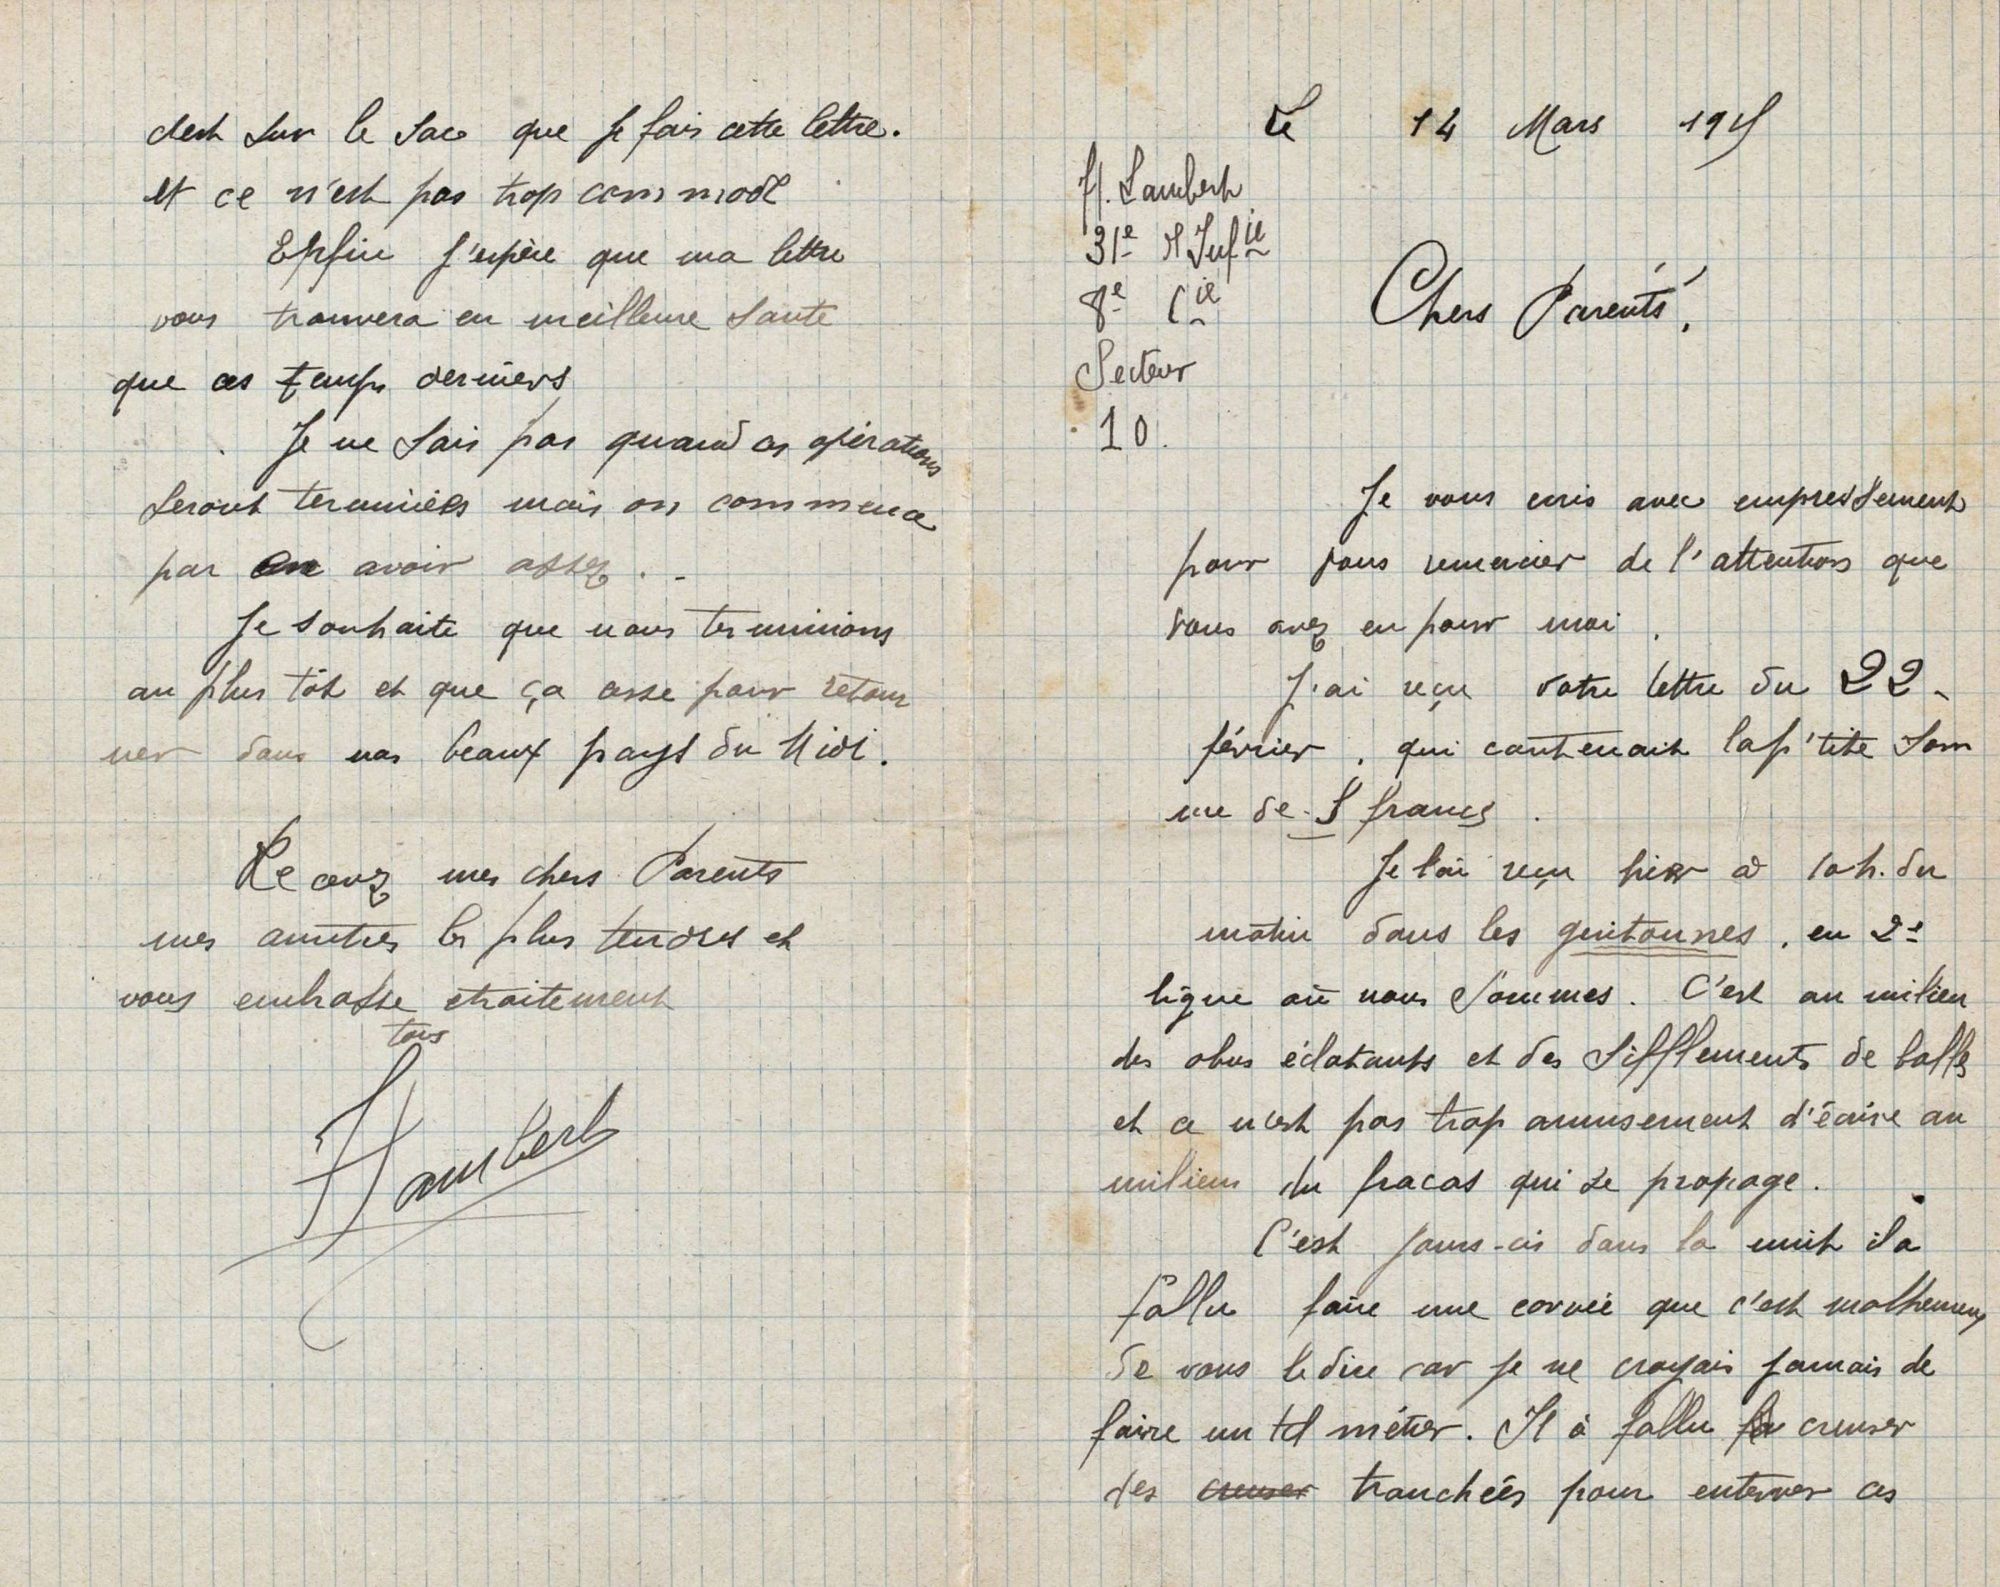 Le 14 Mars 1915
H. Lambert
31e d'Infie
8e Cie
Secteur
10.
Chers Parents,
Je vous ecris avec empressement
pour vous remercier de l'attention que
vous avez eu pour moi.
J'ai reçu votre lettre du 22
février, qui contenait la p'tite som
me de 5 francs.
Je l'ai reçu hier à 10 h. du
matin dans les guitounes, en 2e
ligne où nous sommes. C'est au milieu
des obus éclatants et des sifflements de balles
et ce n'est pas trop amusement d'écrire au
milieu du fracas qui se propage.
C'est jours-cis dans la nuit il a
fallu faire une corvée que c'est malheureux
de vous le dire car je ne croyais jamais de
faire un tel métier. Il à fallu creuser
des creuser tranchées pour enterrer ces
c'est sur le sac que je fais cette lettre.
et ce n'est pas trop commode
Enfin j'espère que ma lettre
vous trouvera en meilleure santé
que ces temps derniers
Je ne sais pas quand ces opérations
seront terminées mais on commence
par en avoir assez.
Je souhaite que nous terminions
au plus tôt et que ça cesse pour retour
ner dans nos beaux pays du Midi.
Recevez mes chers Parents
mes amitiés les plus tendres et
vous embrasse etroitement
tous
HLambert